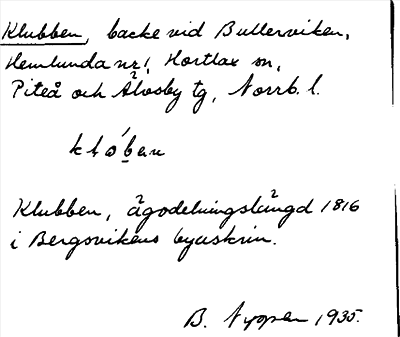 Klubben, backe vid Bullerviken,
Hemlunda nr 1, Hortlax sn,
Piteå och Älvsby tg, Norrb. l.
Klubben, ägodelningslängd 1816
i Bergsvikens byaskrin.
B. Nyppen 1935.